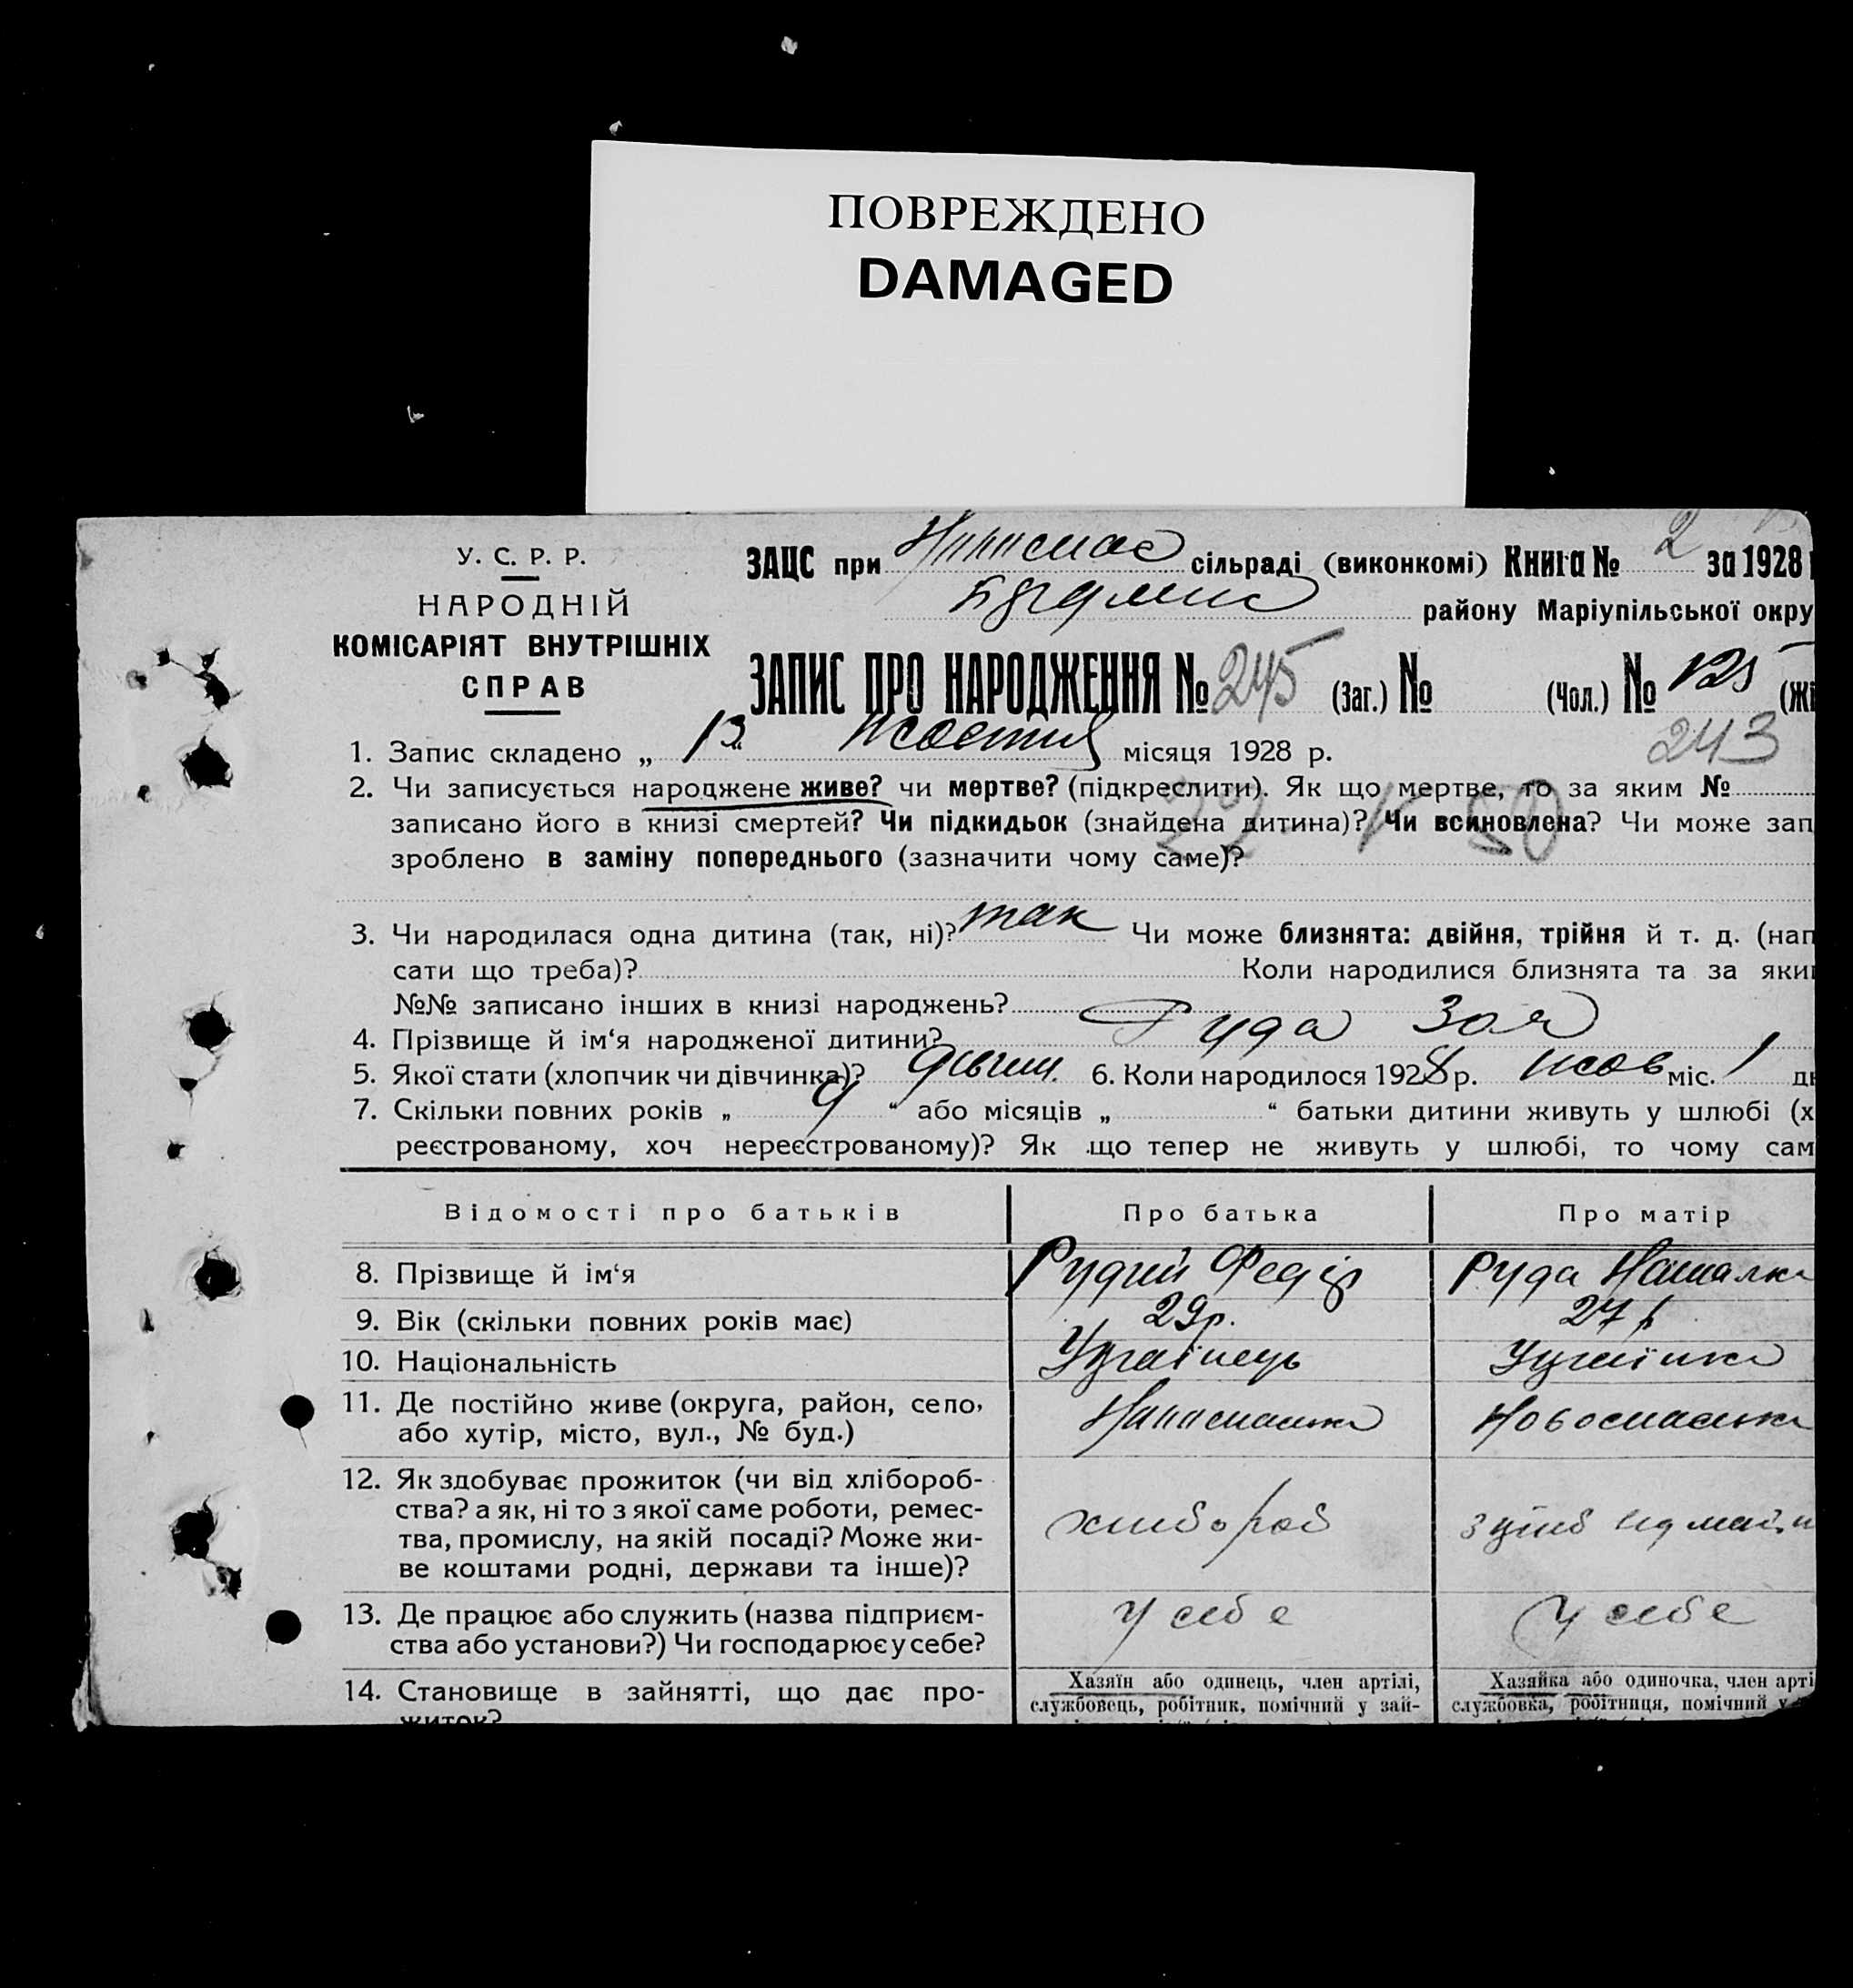 ПОВРЕЖДЕНО
DAMAGED
У. С. Р. Р.
НАРОДНІЙ
КОМІСАРІЯТ ВНУТРІШНІХ
СПРАВ
ЗАЦС при сільраді (виконкомі) Книга № 2 за 1928
району Маріупільської окру
ЗАПИС ПРО НАРОДЖЕННЯ № 245 (Заг.) № (Чол.) № 125 (Жі
243
1. Запис складено „ 13 “ місяця 1928 р.
2. Чи записується народжене живе? чи мертве? (підкреслити). Як що мертве, то за яким №
записано його в книзі смертей? Чи підкидьок (знайдена дитина)? Чи всиновлена? Чи може зап
зроблено в заміну попереднього (зазначити чому саме)?
3. Чи народилася одна дитина (так, ні)? так Чи може близнята: двійня, трійня й т. д. (нап
сати що треба)? Коли народилися близнята та за яки
№№ записано інших в книзі народжень?
4. Прізвище й ім‘я народженої дитини? Руда Зоя
5. Якої стати (хлопчик чи дівчинка)? 6. Коли народилося 1928 р. жов міс. 1 дн
7. Скільки повних років „ 9 “ або місяців „ “ батьки дитини живуть у шлюбі (х
реєстрованому, хоч нереєстрованому)? Як що тепер не живуть у шлюбі, то чому сам
Відомості про батьків Про батька Про матір
8. Прізвище й ім‘я Рудий Федір Руда Наталка
9. Вік (скільки повних років має) 29 р. 27 р
10. Національність Українець Українка
11. Де постійно живе (округа, район, село, або хутір, місто, вул., № буд.) Новоспаська
12. Як здобуває прожиток (чи від хлібороб-
ства? а як, ні то з якої саме роботи, ремес-
тва, промислу, на якій посаді? Може жи-
ве коштами родні, держави та інше)? хлібороб
13. Де працює або служить (назва підприєм-
ства або установи?) Чи господарює у себе? у себе у себе
14. Становище в зайнятті, що дає про-
житок?
Хазяїн або одинець, член артілі,
службовець, робітник, помічний у зай-
Хазяйка або одиночка, член арті
службовка, робітниця, помічний у